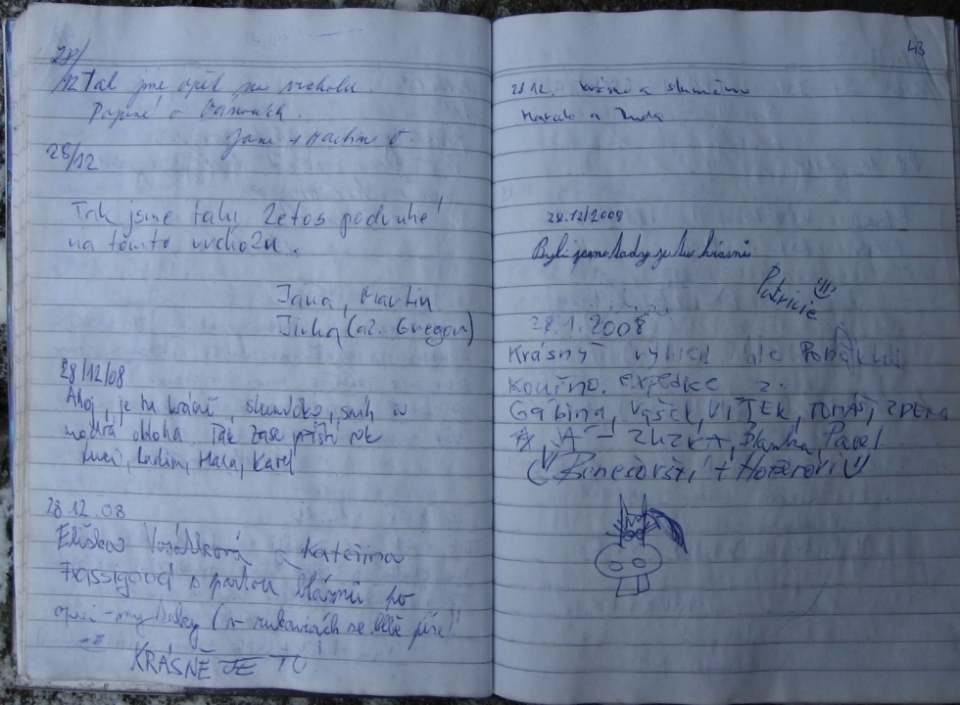 28/
12 Tak jsme opět na vrcholu.
Poprvé o Vánocích.
Jana + Martin
28/12
Tak jsme taky letos podruhé
na tomto vrcholu.
Jana, Martin
Jirka (al. Gregor)
28/12/08
Ahoj, je tu krásně, sluníčko, sníh a
modrá obloha. Tak zase příští rok
Luci, Ladim, Hana, Karel
28.12.08
Eliška a Kateřina
s partou bláznů po
(v rukavicích se blbě píše)!
KRÁSNĚ JE TU
43
28.12. krásně a slunečno
a
28.12/2008
Byli jsme tady je tu krásně
Patricie
28.1.2008
Krásný výhled ale
kouřmo. expedice z:
Gábina, Vašek, VÍTEK, TOMÁŠ, ZDENA
ZUZKA, Blanka, Pavel
Benešovští + Hořenovi